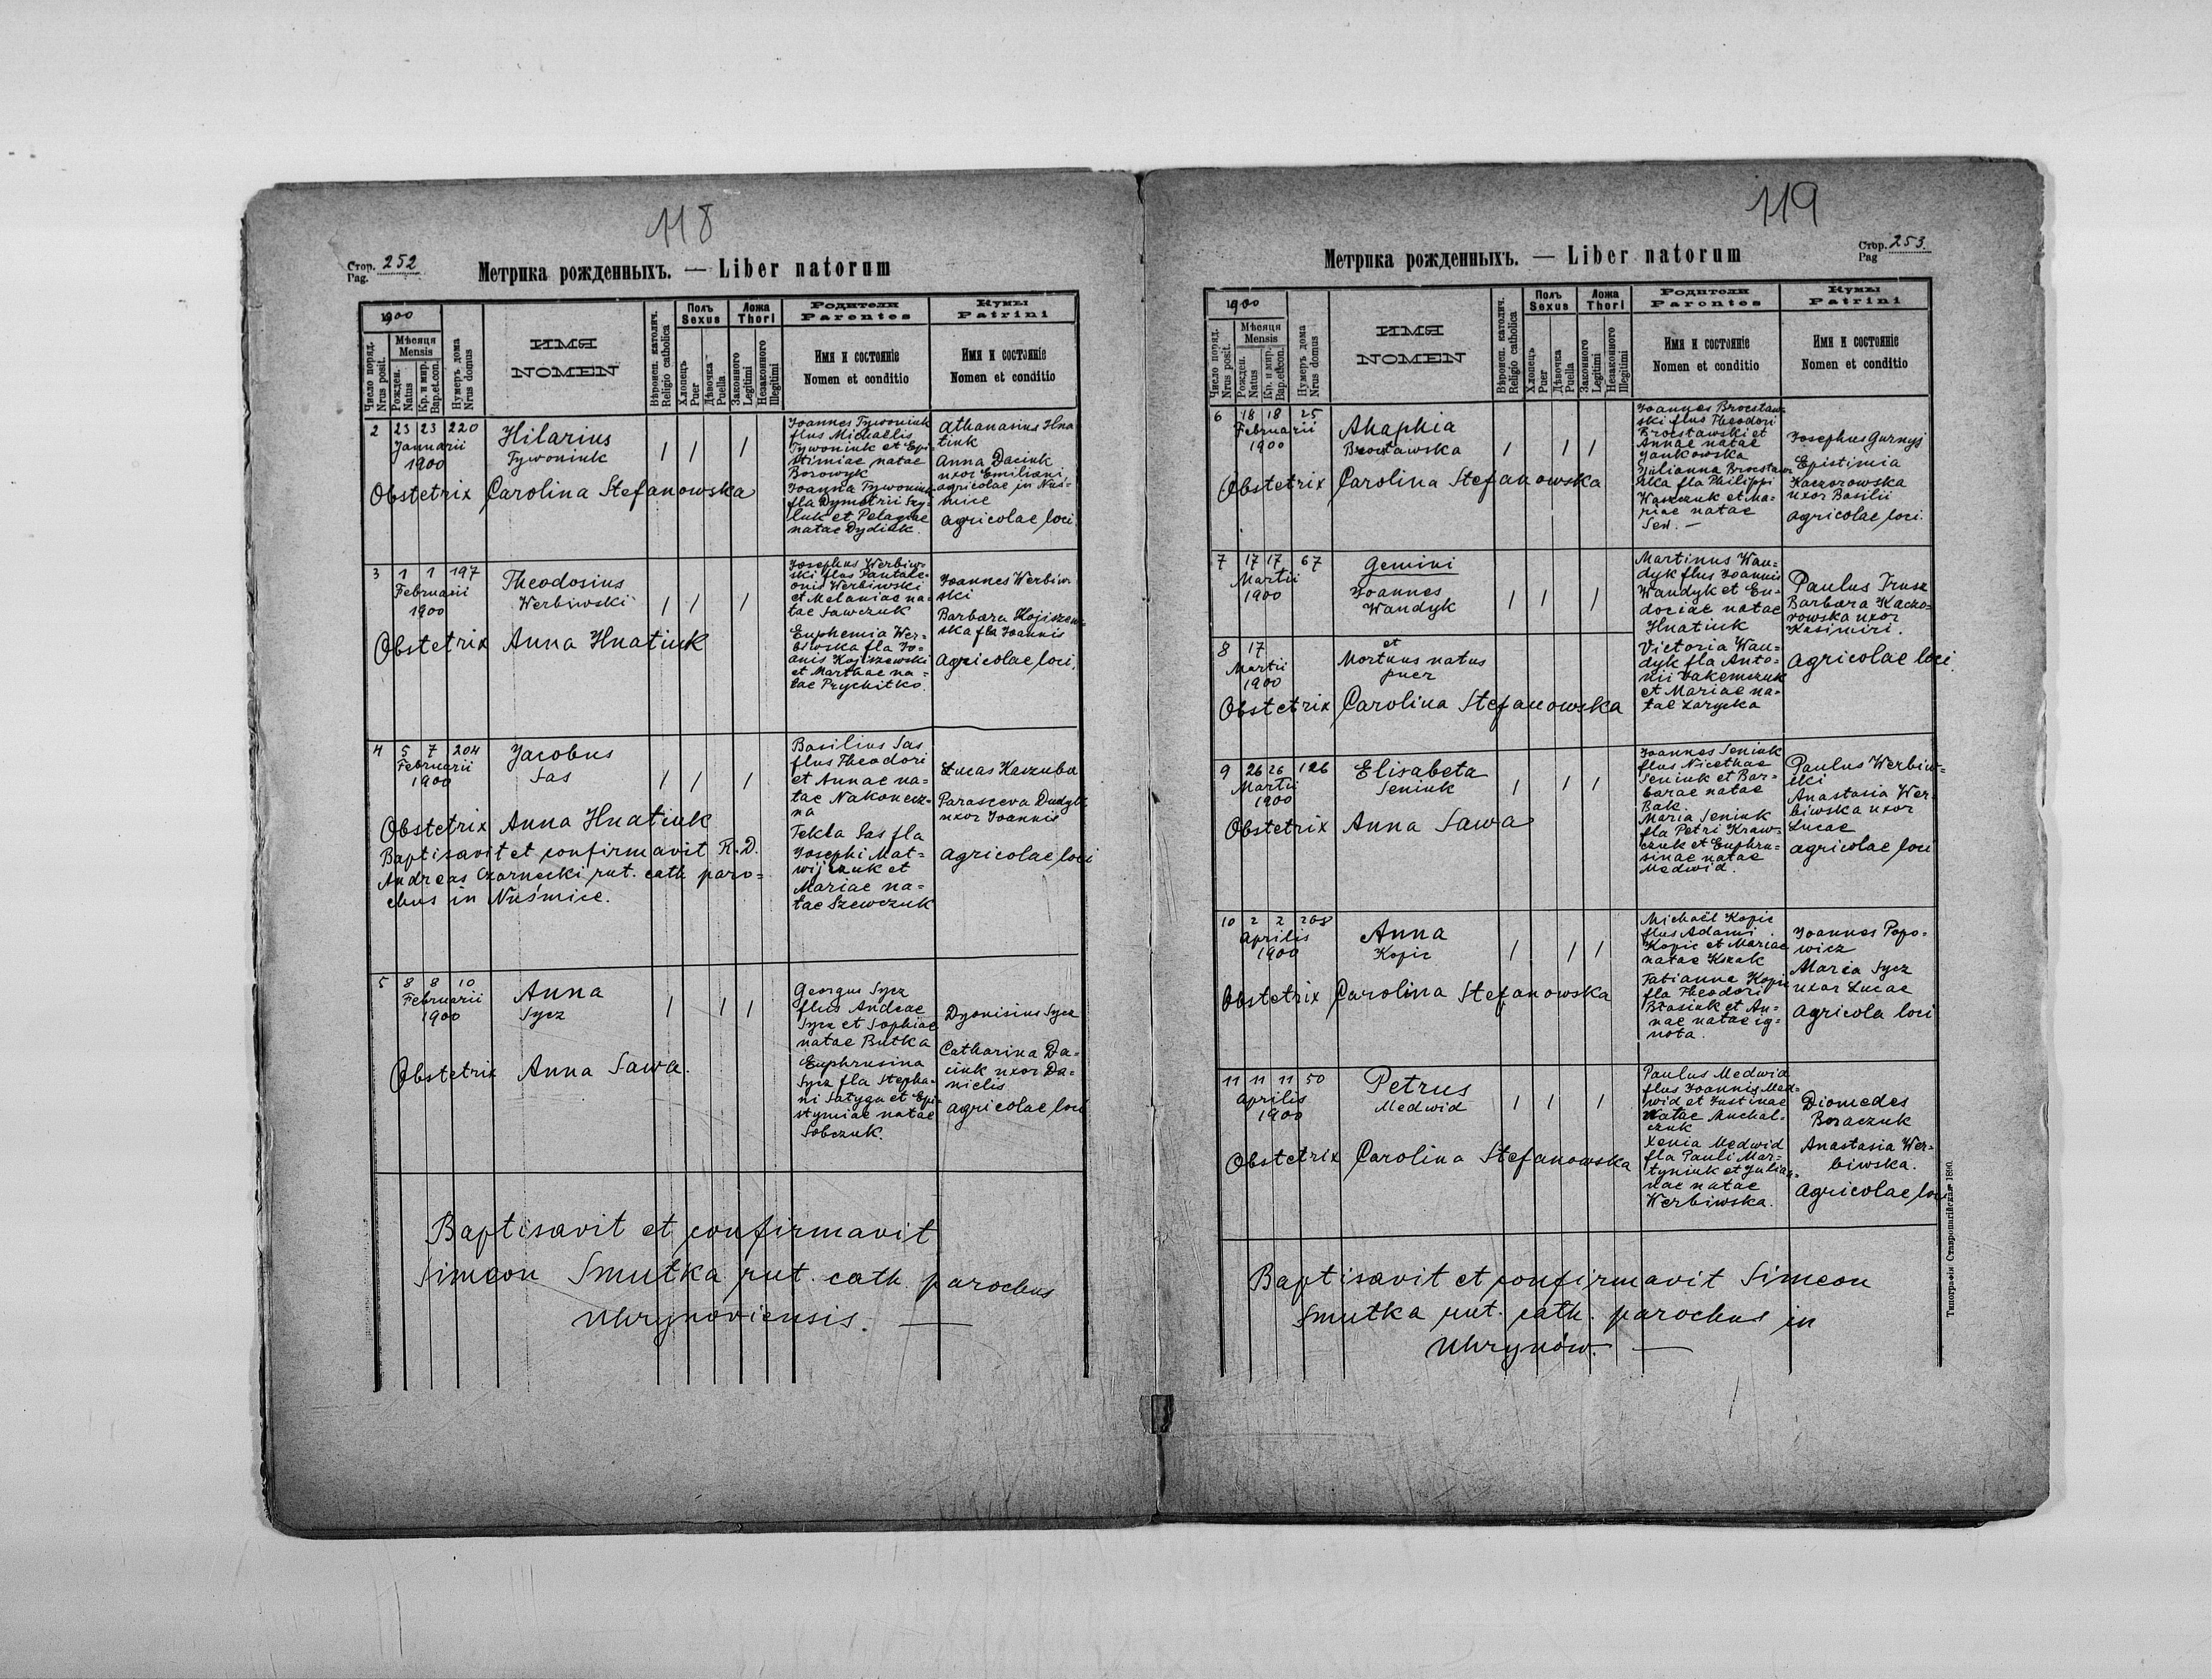 118
Стор. 252
Pag.
Метрика рожденныхъ. — Liber natorum
1900
Число поряд.
Nrus posit.
Мѣсяця
Mensis
Рожден.
Natus
Кр. и мир.
Bap.et.con.
Нумеръ дома
Nrus domus
ИМЯ
NOMEN
Вѣроисп. католич.
Religio catholica
Полъ
Sexus
Хлопець
Puer
Дѣвочка
Puella
Ложа
Thori
Законного
Legitimi
Незаконного
Illegitimi
Родители
Parentes
Имя и состояніе
Nomen et conditio
Кумы
Patrini
Имя и состояніе
Nomen et conditio
2 23 23 220
Januarii
1900
Hilarius
Tywoniuk
/ / /
Obstetrix Carolina Stefanowska
Joannes Tywoniuk
flus Michaëlis
Tywoniuk et Epi-
stimiae natae
Borowyk
Joanna Tywoniuk
fla Dymetrii Szy-
luk et Pelagiae
natae Dydiuk.
Athanasius Hna
tiuk
Anna Daciuk
uxor Emiliani
agricolae in Nuś-
mice
agricolae loci.
3 1 1 197
Februarii
1900
Theodosius
Werbiwski
/ / /
Obstetrix Anna Hnatiuk
Josephus Werbiw-
ski flus Pantale-
onis Werbiwski
et Melaniae na-
tae Sawczuk
Euphemia Wer-
biwska fla Jo-
anis Kojiszewski
et Marthae na-
tae Prychitko.
Joannes Werbiw-
ski
Barbara Kojiszew-
ska fla Joannis
agricolae loci.
4 5 7 204
Februarii
1900
Jacobus
Sas
/ / /
Obstetrix Anna Hnatiuk
Baptisavit et confirmavit R. D.
Andreas Czarnecki rut. cath. paro=
chus in Nuśmice.
Basilius Sas
flus Theodori
et Annae na=
tae Nakonecz=
na
Tekla Sas fla
Josephi Mat=
wijczuk et
Mariae na=
tae Szewczuk
Lucas Kaczuba
Parasceva Dudyk
uxor Joannis
agricolae loci
5 8 8 10
Februarii
1900
Anna
Sycz
/ / /
Obstetrix Anna Sawa.
Georgus Sycz
flus Andreae
Sycz et Sophiae
natae Butka
Euphrusina
Sycz fla Stepha-
ni Satyga et Epi-
stymiae natae
Sobczuk.
Dyonisius Sycz
Catharina Da=
ciuk uxor Da=
nielis
agricolae loci
Baptisavit et confirmavit
Simeon Smutka rut. cath. parochus
Uhrynoviensis. —
119
Стор. 253.
Pag
Метрика рожденныхъ. — Liber natorum
1900
Число поряд.
Nrus posit.
Мѣсяця
Mensis
Рожден.
Natus
Кр. и мир.
Bap.et.con.
Нумеръ дома
Nrus domus
ИМЯ
NOMEN
Вѣроисп. католич.
Religio catholica
Полъ
Sexus
Хлопець
Puer
Дѣвочка
Puella
Ложа
Thori
Законного
Legitimi
Незаконного
Illegitimi
Родители
Parentes
Имя и состояніе
Nomen et conditio
Кумы
Patrini
Имя и состояніе
Nomen et conditio
6 18 18 25
Februarii
1900
Ahaphia
Brocławska
/ / /
Obstetrix Carolina Stefanowska
Joannes Brocław-
ski flus Theodori
Brocławski et
Annae natae
Jankowska
Julianna Brocław
ska fla Philippi
Waszczuk et Ma=
riae natae
Sen. —
Josephus Gurnyj
Epistimia
Kaczorowska
uxor Basilii
agricolae loci.
7 17 17 67
Martii
1900
Gemini
Joannes
Wandyk
/ / /
8 17
Martii
1900
et
Mortuus natus
puer
Obstetrix Carolina Stefanowska
Martinus Wan=
dyk flus Joannis
Wandyk et Eu=
dociae natae
Hnatiuk
Victoria Wan=
dyk fla Anto=
nii Vakemczuk
et Mariae na=
tae Zarycka
Paulus Trusz
Barbara Kaczo=
rowska uxor
Kasimiri.
agricolae loci.
9 26 26 126
Martii
1900
Elisabeta
Seniuk
/ / /
Obstetrix Anna Sawa
Joannes Seniuk
flus Nicethae
Seniuk et Bar=
barae natae
Bak.
Maria Seniuk
fla Petri Kraw=
czuk et Euphru=
sinae natae
Medwid.
Paulus Werbiw=
ski
Anastasia Wer
biwska uxor
Lucae
agricolae loci
10 2 2 208
Aprilis
1900
Anna
Kopic
/ / /
Obstetrix Carolina Stefanowska
Michaël Kopic
flus Adami
Kopic et Mariae
natae Kozak
Tatianna Kopic
fla Theodori
Błasiuk et An=
nae natae ig=
nota.
Joannes Popo=
wicz
Maria Sycz
uxor Lucae
agricola loci
11 11 11 50
Aprilis
1900
Petrus
Medwid
/ / /
Obstetrix Carolina Stefanowska
Paulus Medwid
flus Joannis Med=
wid et Justinae
natae Muchal=
czuk
Xenia Medwid
fla Pauli Mar=
tyniuk et Julian=
nae natae
Werbiwska.
Diomedes
Boraczuk
Anastasia Wer=
biwska.
agricolae loci
Baptisavit et confirmavit Simeon
Smutka rut. cath. parochus in
Uhrynów. —
Типографія Ставропигійская 1890.